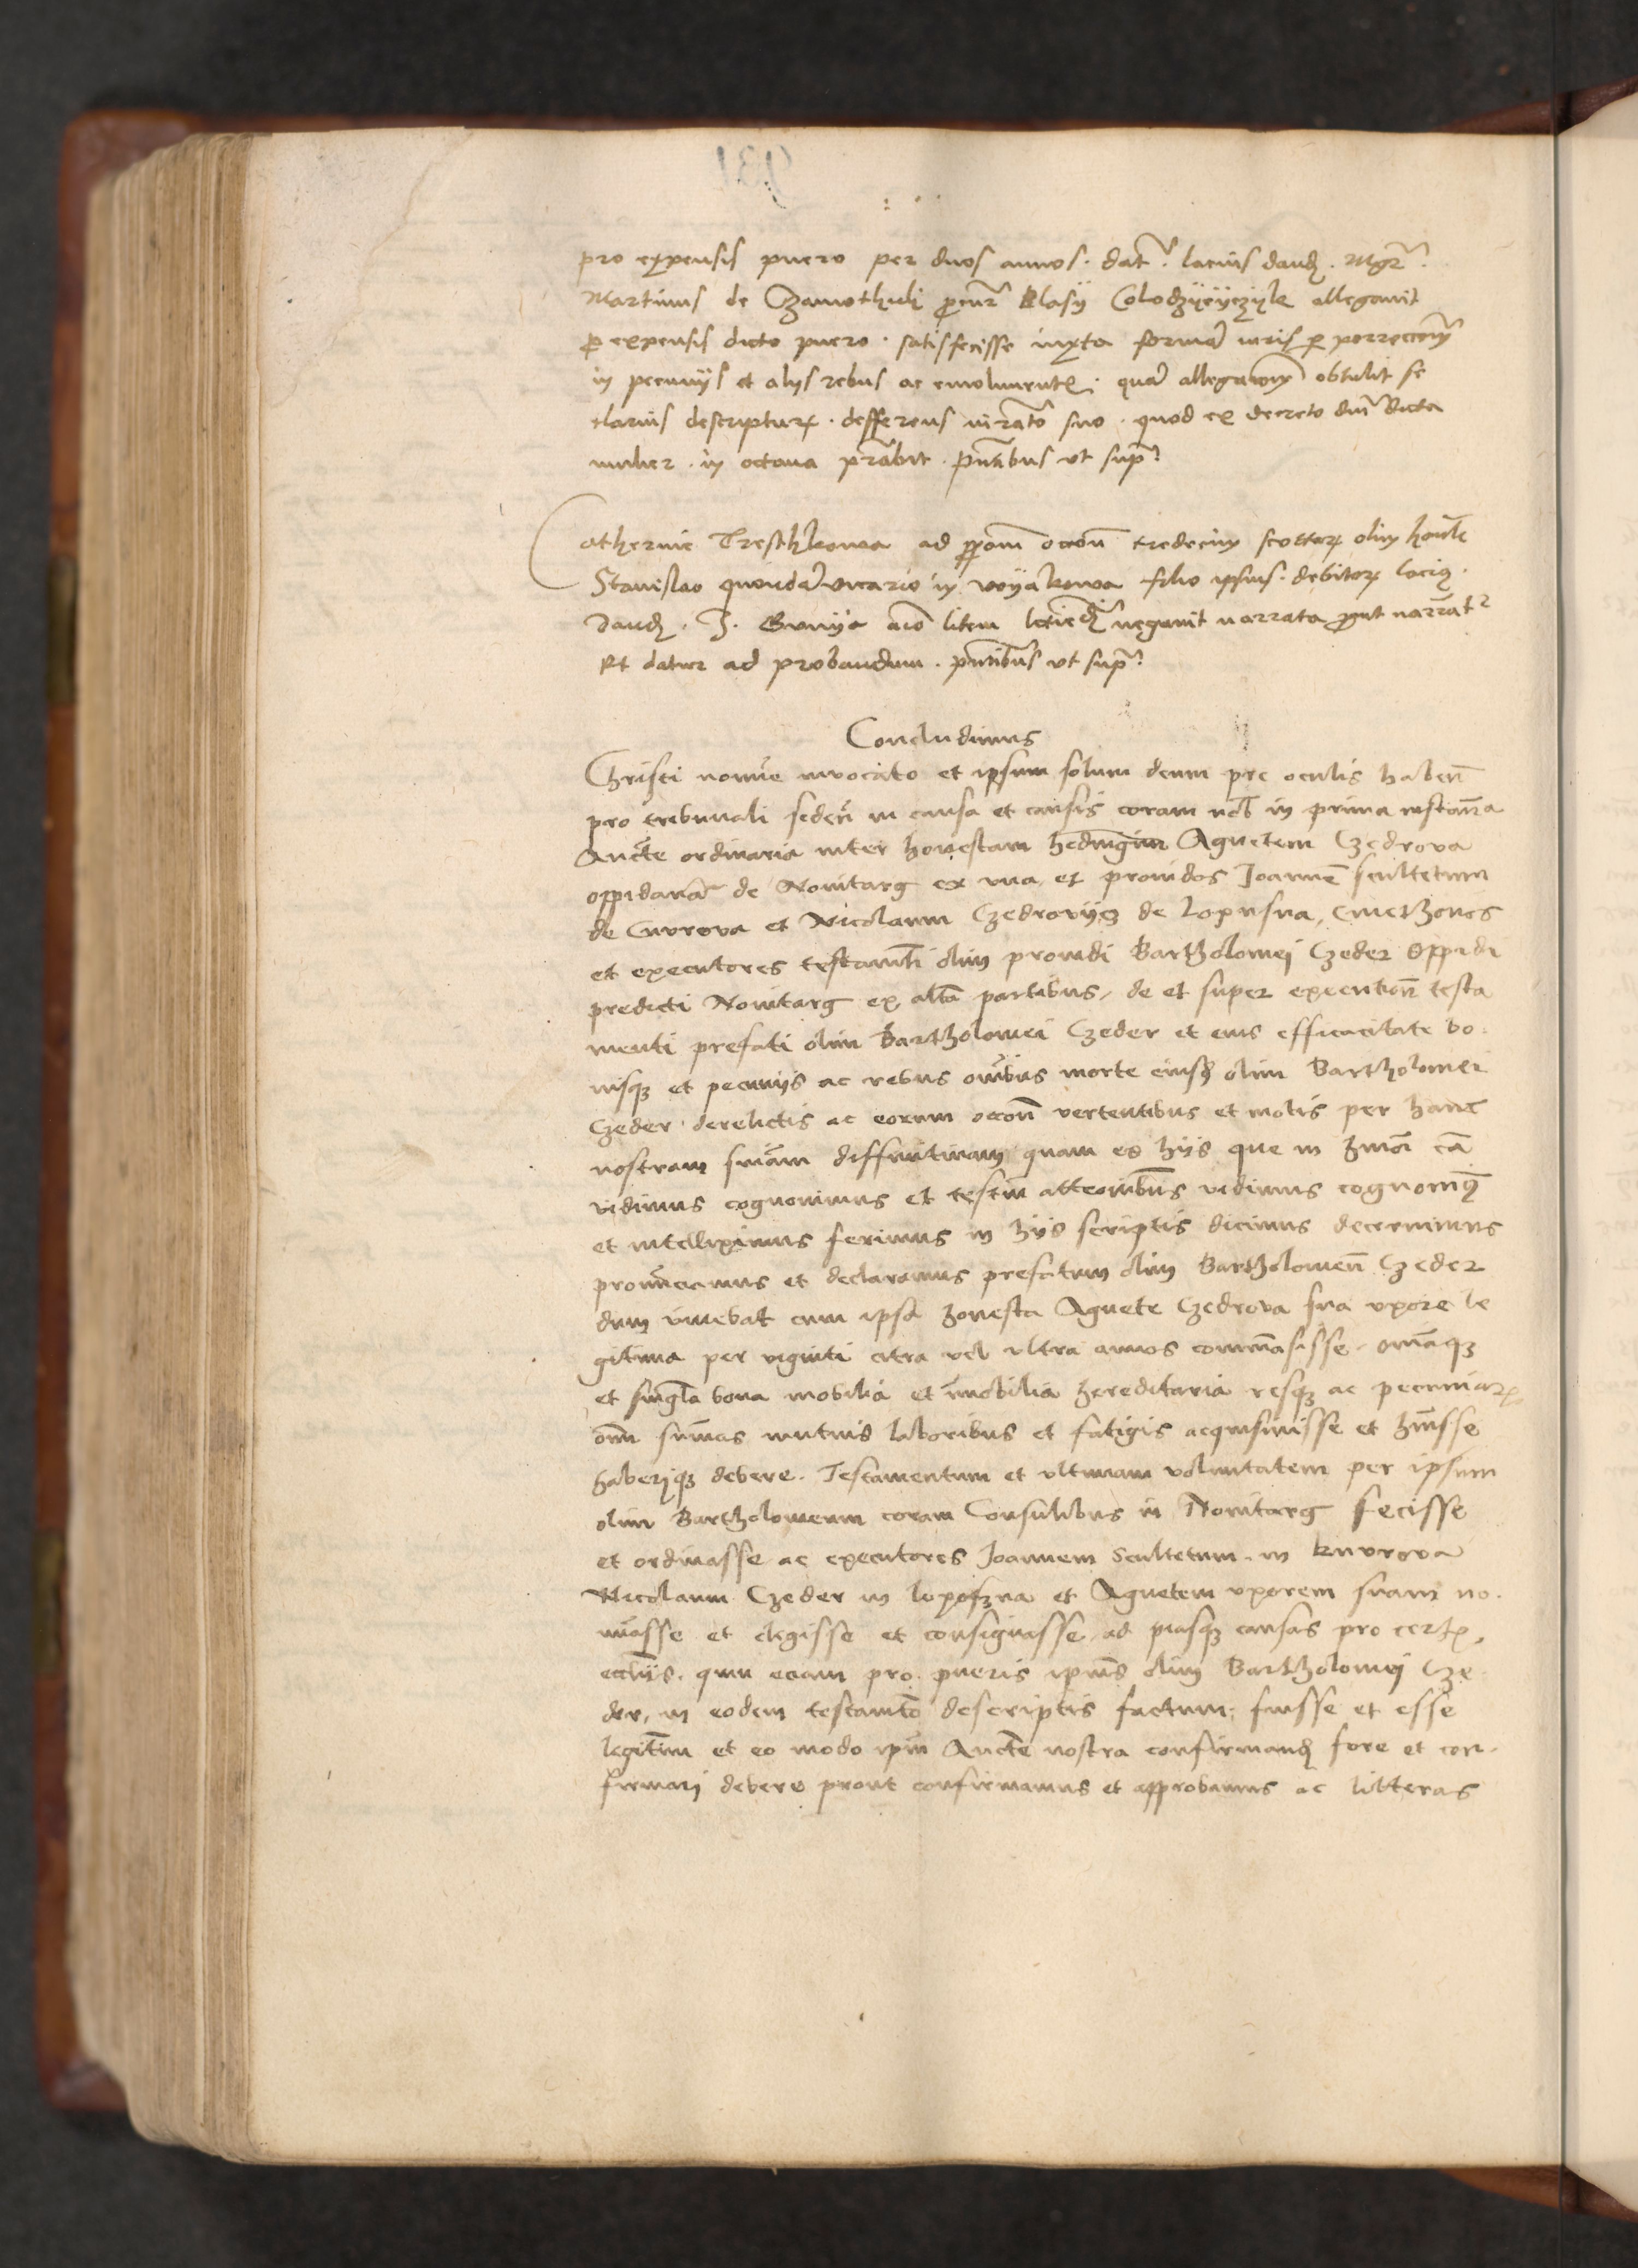 pro expensis puero per duos annos. dat. lacius dand. Mgr.
Martinus de Czamothuli procur Blasy Colodzyeyczyk allegavit
pro expensis dicto puero. satisfecisse iuxta formam iuris per porreccionem
in pecunys et alys rebus ac emolument. quam allegacionem obtulit se
clarius descripturum. desserens iuramento suo. quod ex decreto dni dicta
mulier. in octava prestabit. pntibus ut supra
Catherine Treschkowa ad proponem occon tredecim scottorum olim honorabili
Stanislao quondam vicario in Woyakowa filio ipsius. debitorum lacius.
dand. J. Gunya animo litem negavit narrata prout narrantur
Et datur ad probandum. pntibus ut supra
Concludimus
Christi nomine invocato et ipsum solum deum pre oculis haben
pro tribunali seden in causa et causis coram nob in prima instancia
Aucte ordinaria inter honestam hedwigim Agnetem Czedrova
oppidanam de Novitarg ex una, et providos Joannem scultetum
de Cnurova et Nicolaum Czedrovycz de Lopusna, Cmethones
et executores testamenti olim providi Bartholomei Czeder oppidi
predicti Novitarg ex altera partibus, de et super execution testa
menti prefati olim Bartholomei Czeder et eius efficacitate bo
nisque et pecunys ac rebus omnibus morte eiusdem olim Bartholomei
Czeder derelictis ac eorum occon vertentibus et motis per hanc
nostram sniam diffinitivam quam ex hys que in hmoi ca
vidimus cognovimus et testium attestionibus vidimus cognovimus
et intelleximus ferimus in hys scriptis dicimus decernimus
pronunciamus et declaramus prefatum olim Bartholomeum Czeder
dum vivebat cum ipsa honesta Agnete Czedrova sua uxore le
gitima per viginti citra vel ultra annos commansisse, omniaque
et singula bona mobilia et immobilia hereditaria resque ac pecuniarum
omnes summas mutuis laboribus et fatigis acquisivisse et huisse
haberique debere. Testamentum et ultimam voluntatem per ipsum
olim Bartholomeum coram Consulibus in Novitarg fecisse
et ordinasse ac executores Joannem Scultetum in Knurova
Nicolaum Czeder in loposzna et Agnetem uxorem suam no
minasse et elegisse et consignasse, ad piasque causas pro certis
ecclys. quin eciam pro pueris ipsius olim Bartholomei Cze
der, in eodem testamento descriptis factum, fuisse et esse
legitimum et eo modo ipsum Aucte nostra confirmand fore et con
firmari debere prout confirmamus et approbamus ac litteras